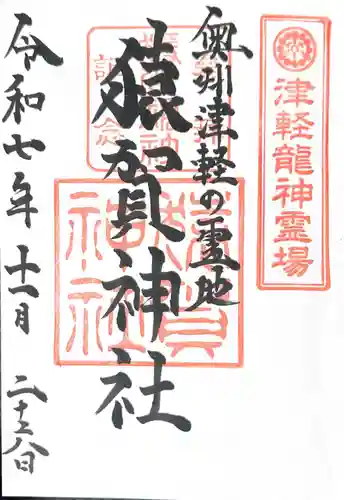 津軽龍神霊場
奥州津軽の霊地
猿賀神社
猿賀神社
令和七年十一月二十八日